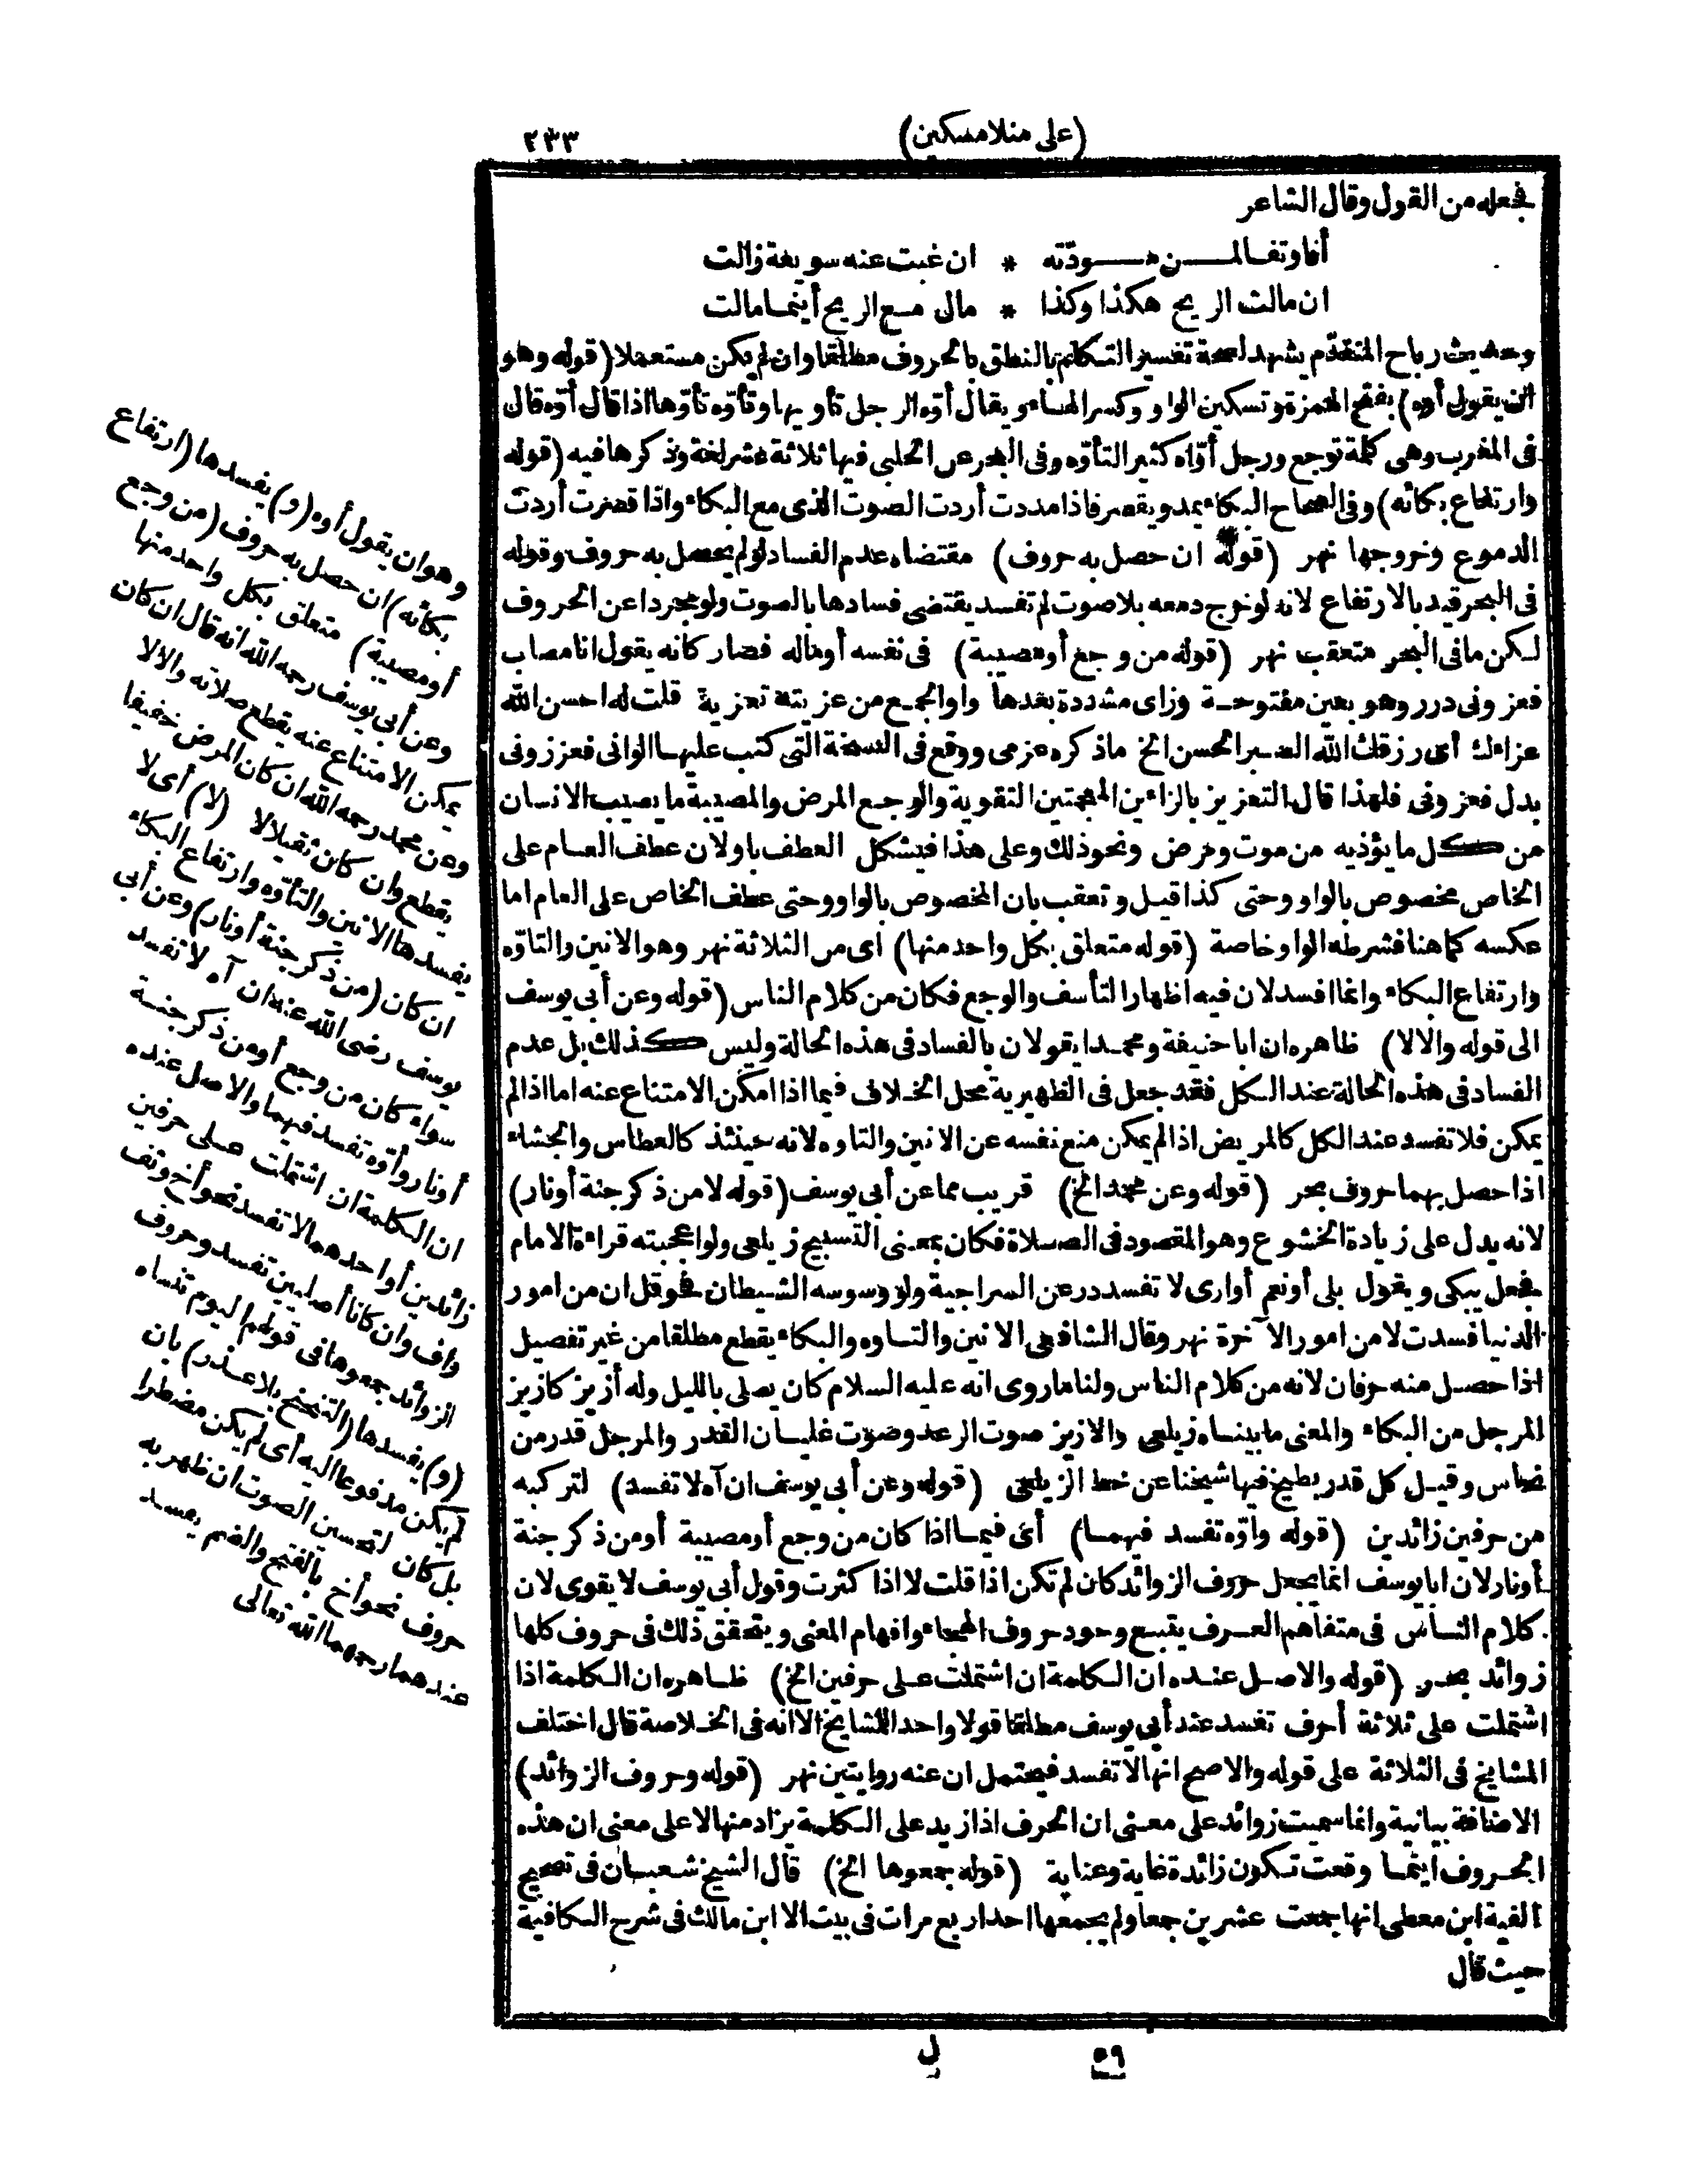 (على منلامسكين)
٢٣٣
فجعله من القول وقال الشاعر
أفا وتفا لمن مودّته * ان غبت عنه سويعة زالت
ان مالت الريح هكذا وكذا * مال مع الريح أينما مالت
وحديث رباح المتقدّم يشهد لصحة تفسير التكلم بالنطق بالحروف مطلقا وان لم يكن مستعملا (قوله وهو
ان يقول أوه) بفتح الهمزة وتسكين الواو وكسر الهاء ويقال أوّه الرجل تأويها وتأوّه تأوّها اذا قال أوّه قال
فى المغرب وهى كلمة توجع ورجل أوّاه كثير التأوّه وفى البحر عن الحلبى فيها ثلاثة عشر لغة وذكرها فيه (قوله
وارتفاع بكائه) وفى الصحاح البكاء يمد ويقصر فاذا مددت أردت الصوت الذى مع البكاء واذا قصرت أردت
الدموع وخروجها نهر (قوله ان حصل به حروف) مقتضاه عدم الفساد لو لم يحصل به حروف وقوله
فى البحر قيد بالارتفاع لانه لو خرج دمعه بلا صوت لم تفسد يقتضى فسادها بالصوت ولو مجردا عن الحروف
لكن ما فى البحر متعقب نهر (قوله من وجع أو مصيبة) فى نفسه أو ماله فصار كانه يقول انا مصاب
فعزونى درر وهو بعين مفتوحة وزاى مشددة بعدها واو الجمع من عزيته تعزية قلت له احسن الله
عزاءك أى رزقك الله الصبر الحسن الخ ما ذكره عزمى ووقع فى النسخة التى كتب عليها الوانى فعززونى
بدل فعزونى فلهذا قال التعزيز بالزاءين المعجمتين التقوية والوجع المرض والمصيبة ما يصيب الانسان
من كل ما يؤذيه من موت ومرض ونحو ذلك وعلى هذا فيشكل العطف باو لان عطف العام على
الخاص مخصوص بالواو وحتى كذا قيل وتعقب بان المخصوص بالواو وحتى عطف الخاص على العام اما
عكسه كما هنا فشرطه الواو خاصة (قوله متعلق بكل واحد منها) اى من الثلاثة نهر وهو الانين والتاوّه
وارتفاع البكاء وانما افسد لان فيه اظهار التأسف والوجع فكان من كلام الناس (قوله وعن أبى يوسف
الى قوله والالا) ظاهره ان ابا حنيفة ومحمدا يقولان بالفساد فى هذه الحالة وليس كذلك بل عدم
الفساد فى هذه الحالة عند الكل فقد جعل فى الظهيرية محل الخلاف فيما اذا امكن الامتناع عنه اما اذا لم
يمكن فلا تفسد عند الكل كالمريض اذا لم يمكن منع نفسه عن الانين والتاوه لانه حينئذ كالعطاس والجشاء
اذا حصل بهما حروف بحر (قوله وعن محمد الخ) قريب مما عن أبى يوسف (قوله لا من ذكر جنة أو نار)
لانه يدل على زيادة الخشوع وهو المقصود فى الصلاة فكان بمعنى التسبيح زيلعى ولو اعجبته قراءة الامام
فجعل يبكى ويقول بلى أو نعم أو ارى لا تفسد در عن السراجية ولو وسوسه الشيطان فحوقل ان من امور
الدنيا فسدت لا من امور الآخرة نهر وقال الشافعى الانين والتاوه والبكاء يقطع مطلقا من غير تفصيل
اذا حصل منه حرفان لانه من كلام الناس ولنا ما روى انه عليه السلام كان يصلى بالليل وله أزيز كازيز
المرجل من البكاء والمعنى ما بيناه زيلعى والازيز صوت الرعد وصوت غليان القدر والمرجل قدر من
نحاس وقيل كل قدر يطبخ فيها شيخنا عن خط الزيلعى (قوله وعن أبى يوسف ان آه لا تفسد) لتركبه
من حرفين زائدين (قوله واوّه تفسد فيهما) أى فيما اذا كان من وجع أو مصيبة أو من ذكر جنة
أو نار لان ابا يوسف انما يجعل حروف الزوائد كان لم تكن اذا قلت لا اذا كثرت وقول أبى يوسف لا يقوى لان
كلام الناس فى متفاهم العرف يتبع وجود حروف الهجاء وافهام المعنى ويتحقق ذلك فى حروف كلها
زوائد بحر (قوله والاصل عنده ان الكلمة ان اشتملت على حرفين الخ) ظاهره ان الكلمة اذا
اشتملت على ثلاثة أحرف تفسد عند أبى يوسف مطلقا قولا واحدا للمشايخ الا انه فى الخلاصة قال اختلف
المشايخ فى الثلاثة على قوله والاصح انها لا تفسد فيحتمل ان عنه روايتين نهر (قوله وحروف الزوائد)
الاضافة بيانية وانما سميت زوائد على معنى ان الحرف اذا زيد على الكلمة يزاد منها لا على معنى ان هذه
الحروف اينما وقعت تكون زائدة غاية وعناية (قوله جمعوها الخ) قال الشيخ شعبان فى تصحيح
الفية ابن معطى انها جمعت عشرين جمعا ولم يجمعها احد اربع مرات فى بيت الا ابن مالك فى شرح الكافية
حيث قال
وهو ان يقول أوه (و) يفسدها (ارتفاع
بكائه) ان حصل به حروف (من وجع
أو مصيبة) متعلق بكل واحد منها
وعن أبى يوسف رحمه الله انه قال ان كان
يمكن الامتناع عنه يقطع صلاته والا لا
وعن محمد رحمه الله ان كان المرض خفيفا
يقطع وان كان ثقيلا لا (لا) أى لا
يفسدها الانين والتأوّه وارتفاع البكاء
ان كان (من ذكر جنة أو نار) وعن أبى
يوسف رضى الله عنه ان آه لا تفسد
سواء كان من وجع أو من ذكر جنة
أو نار وأوّه تفسد فيهما والاصل عنده
ان الكلمة ان اشتملت على حرفين
زائدين أو احدهما لا تفسد نحو أخ وتف
واف وان كانا أصليين تفسد وحروف
الزوائد جمعوها فى قولهم اليوم تنساه
(و) يفسدها (التنحنح بلا عذر) بان
لم يكن مدفوعا اليه أى لم يكن مضطرا
بل كان لتحسين الصوت ان ظهر به
حروف نحو أخ بالفتح والضم يفسد
عندهما رحمهما الله تعالى
٥٩
ل